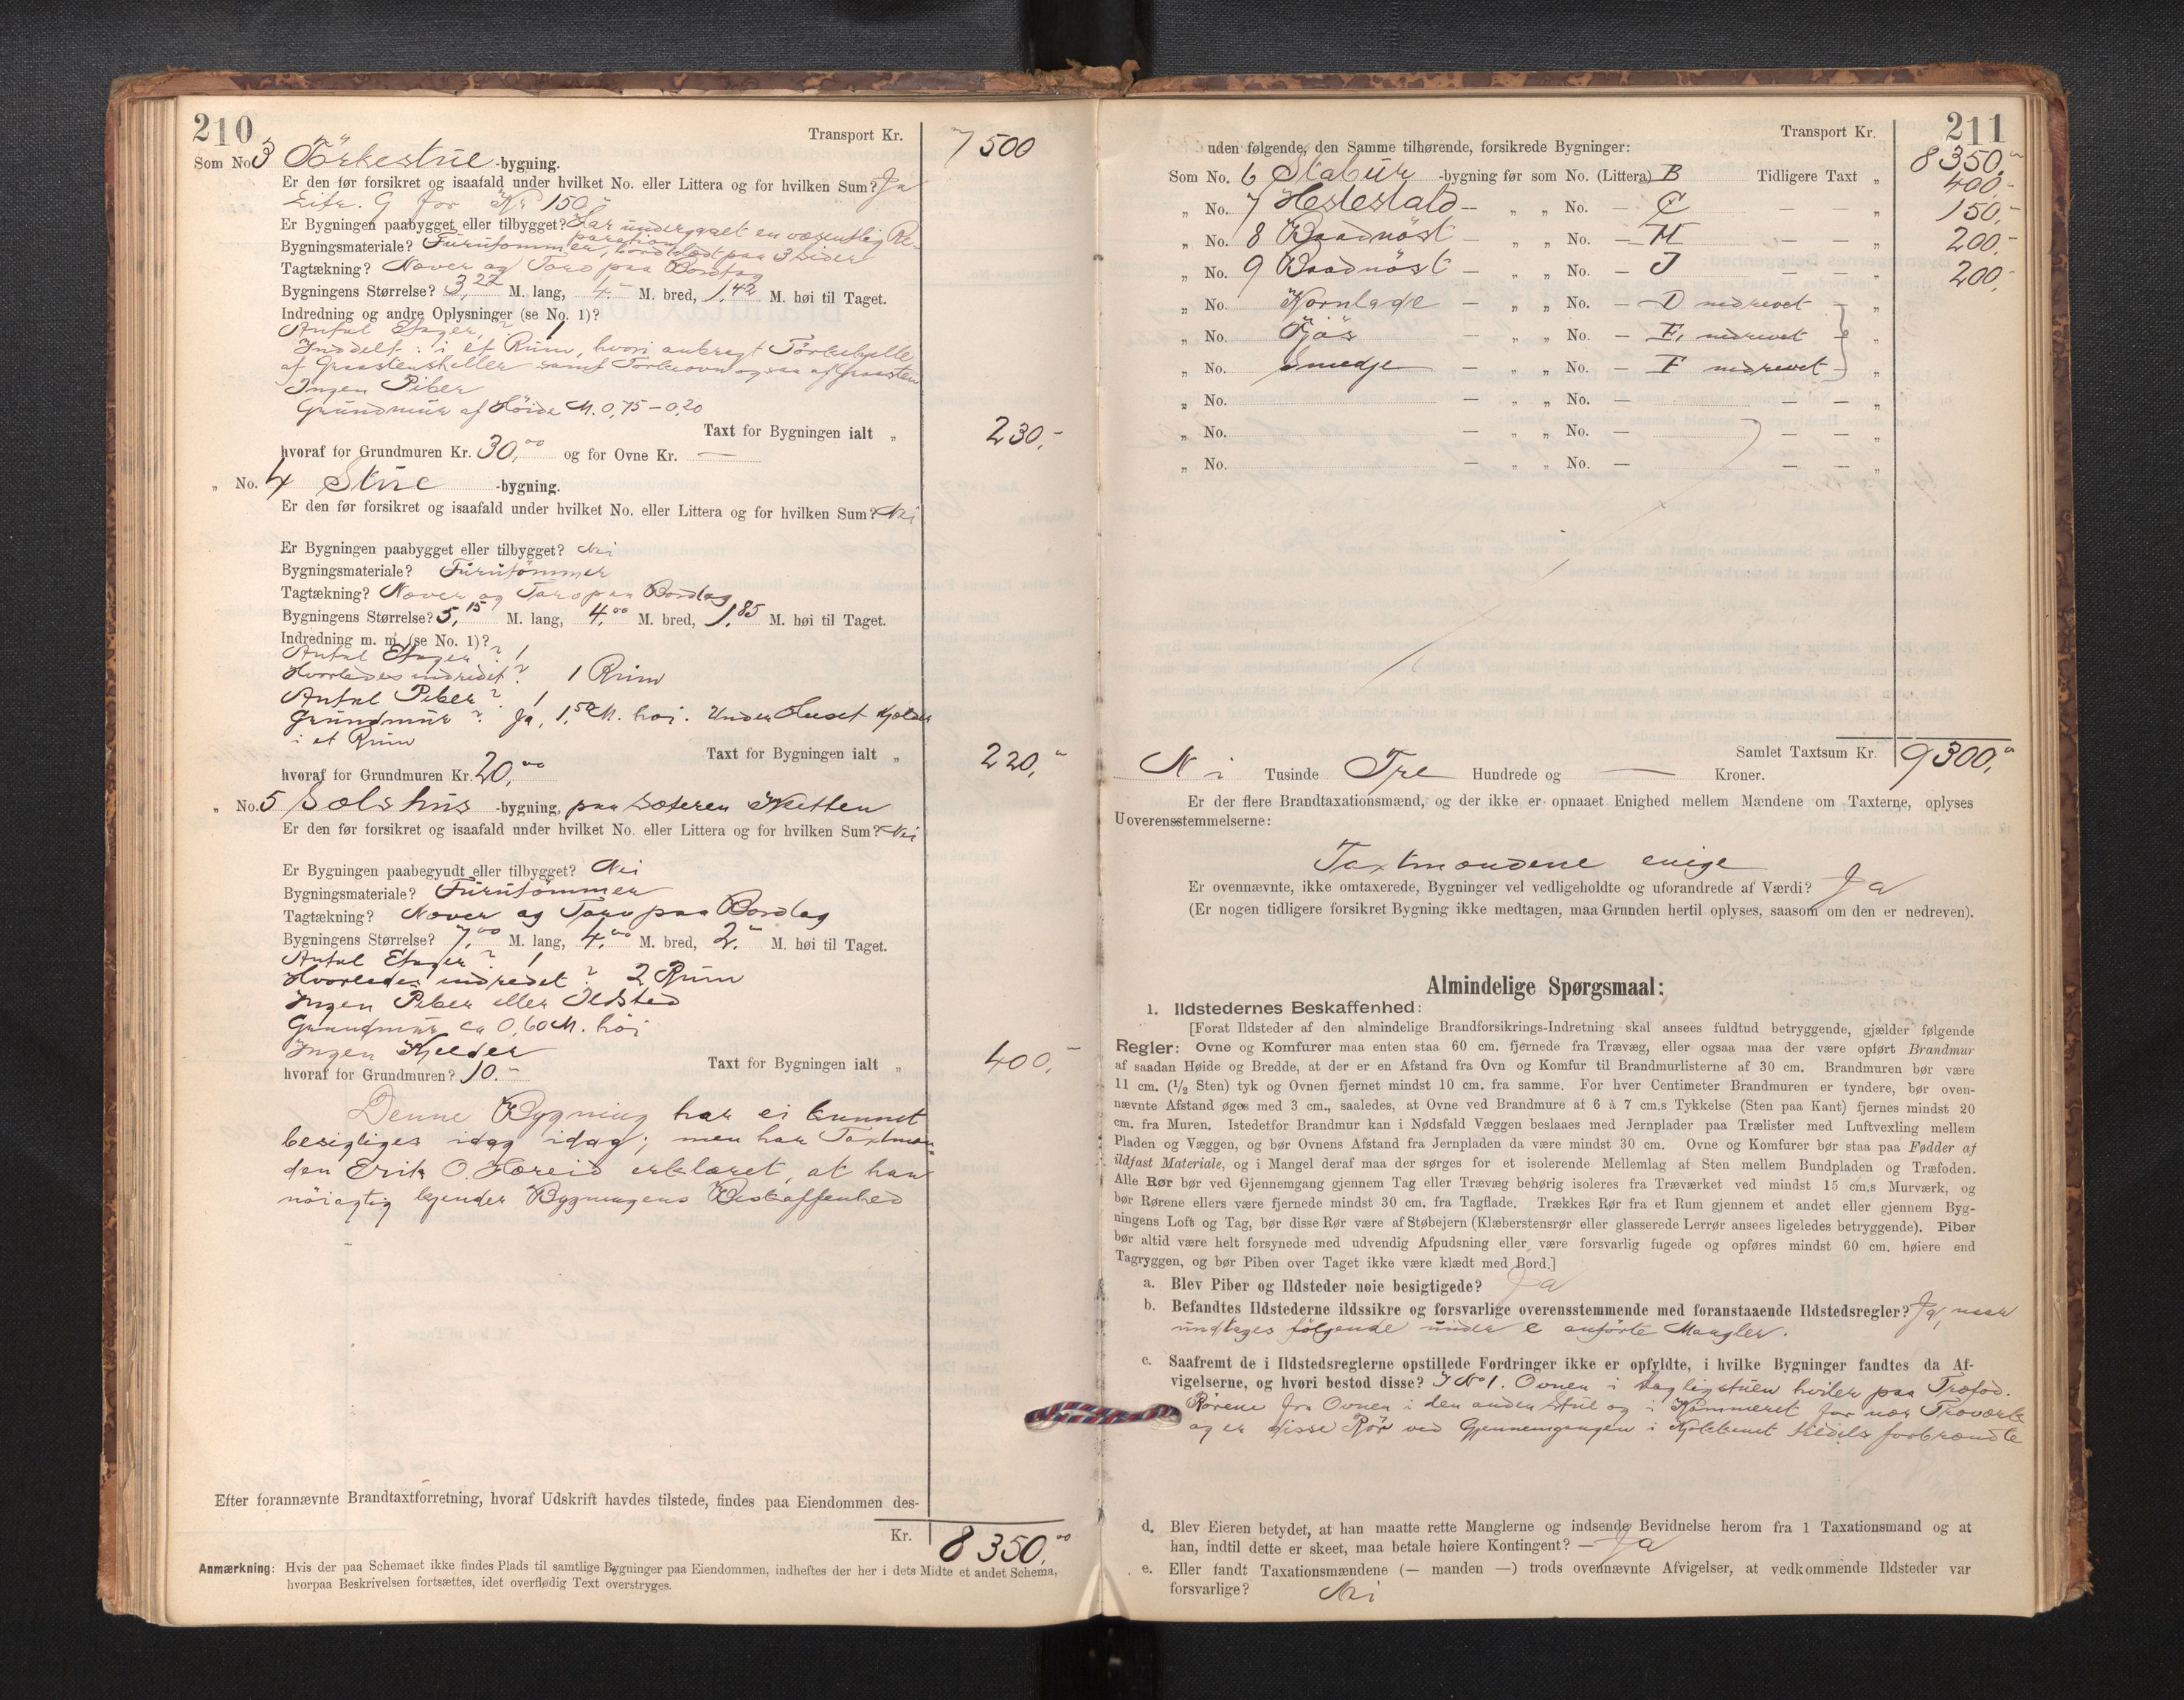 210
Transport Kr. 7500
Som No 3 Törkestue -bygning.
Er den før forsikret og isaafald under hvilket No. eller Littera og for hvilken Sum? Ja
Litr. G for Kr 150,-
Er Bygningen paabygget eller tilbygget? Har undergaaet en væsentlig Re-
paration
Bygningsmateriale? Furutømmer, bordklædt paa 3 Sider
Tagtækning? Næver og Torv paa Bordtag
Bygningens Størrelse? 3,22 M. lang, 4,- M. bred, 1,42 M. høi til Taget.
Indredning og andre Oplysninger (se No. 1)?
Antal Etager? 1
Inddelt: i et Rum, hvori anbragt Törkehjelle
af Graastensheller samt Törkeovn ogsaa af Graasten
Ingen Piber
Grundmur af Höide M. 0,75 – 0,20
Taxt for Bygningen ialt „ 230,-
hvoraf for Grundmuren Kr. 30,00 og for Ovne Kr. —
„ No. 4 Stue -bygning.
Er den før forsikret og isaafald under hvilket No. eller Littera og for hvilken Sum? Nei
Er Bygningen paabygget eller tilbygget? Nei
Bygningsmateriale? Furutömmer
Tagtækning? Næver og Torv paa Bordtag
Bygningens Størrelse? 5,15 M. lang, 4,00 M. bred, 1,85 M. høi til Taget.
Indredning m. m. (se No. 1)?
Antal Etager? 1
Hvorledes indredet? 1 Rum
Antal Piber? 1
Grundmur? Ja, 1,50 M. höi. Under Huset Kjelder
i et Rum
Taxt for Bygningen ialt „ 220,-
hvoraf for Grundmuren Kr. 20,00
„ No. 5 Sælshus -bygning, paa Sæteren
Er den før forsikret og isaafald under hvilket No. eller Littera og for hvilken Sum? Nei
Er Bygningen paabegyndt eller tilbygget? Nei
Bygningsmateriale? Furutömmer
Tagtækning? Næver og Torv paa Bordtag
Bygningens Størrelse? 7,00 M. lang, 4,00 M. bred, 2,- M. høi til Taget.
Antal Etager? 1
Hvorledes indredet? 2 Rum
Ingen Piber eller Ildsted
Grundmur ca 0,60 M. höi
Ingen Kjelder
Taxt for Bygningen ialt „ 400,-
hvoraf for Grundmuren? 10.-
Denne Bygning har ei kunnet
besigtiges idag idag; men har Taxtman-
den Erik O. Hæreid erklæret, at han
nöiagtig kjender Bygningens Beskaffenhed
Efter forannævnte Brandtaxtforretning, hvoraf Udskrift havdes tilstede, findes paa Eiendommen des-
Kr. 8350,00
Anmærkning: Hvis der paa Schemaet ikke findes Plads til samtlige Bygninger paa Eiendommen, indheftes der her i dets Midte et andet Schema,
hvorpaa Beskrivelsen fortsættes, idet overflødig Text overstryges.
211
Transport Kr. 8350,-
uden følgende, den Samme tilhørende, forsikrede Bygninger:
Som No. 6 Stabur -bygning før som No. (Littera) B Tidligere Taxt „ 400,-
„ No. 7 Hestestald — „ „ No. — C — — „ 150,-
„ No. 8 Baadnöst — „ „ No. — H — — „ 200,-
„ No. 9 Baadnöst — „ „ No. — J — — „ 200,-
„ No. Kornlade — „ „ No. — D nedrevet — „
„ No. Fjös — „ „ No. — E, nedrevet — „
„ No. Smedje — „ „ No. — F nedrevet — „
„ No. — „ „ No. — — — „
„ No. — „ „ No. — — — „
„ No. — „ „ No. — — — „
Samlet Taxtsum Kr. 9300,-
Ni Tusinde Tre Hundrede og — Kroner.
Er der flere Brandtaxationsmænd, og der ikke er opnaaet Enighed mellem Mændene om Taxterne, oplyses
Uoverensstemmelserne:
Taxtmændene enige
Er ovennævnte, ikke omtaxerede, Bygninger vel vedligeholdte og uforandrede af Værdi? Ja
(Er nogen tidligere forsikret Bygning ikke medtagen, maa Grunden hertil oplyses, saasom om den er nedreven).
Almindelige Spørgsmaal:
1. Ildstedernes Beskaffenhed:
[Forat Ildsteder af den almindelige Brandforsikrings-Indretning skal ansees fuldtud betryggende, gjælder følgende
Regler: Ovne og Komfurer maa enten staa 60 cm. fjernede fra Trævæg, eller ogsaa maa der være opført Brandmur
af saadan Høide og Bredde, at der er en Afstand fra Ovn og Komfur til Brandmurlisterne af 30 cm. Brandmuren bør være
11 cm. (1/2 Sten) tyk og Ovnen fjernet mindst 10 cm. fra samme. For hver Centimeter Brandmuren er tyndere, bør oven-
nævnte Afstand øges med 3 cm., saaledes, at Ovne ved Brandmure af 6 à 7 cm.s Tykkelse (Sten paa Kant) fjernes mindst 20
cm. fra Muren. Istedetfor Brandmur kan i Nødsfald Væggen beslaaes med Jernplader paa Trælister med Luftvexling mellem
Pladen og Væggen, og bør Ovnens Afstand fra Jernpladen da være mindst 30 cm. Ovne og Komfurer bør staa paa Fødder af
ildfast Materiale, og i Mangel deraf maa der sørges for et isolerende Mellemlag af Sten mellem Bundpladen og Træfoden.
Alle Rør bør ved Gjennemgang gjennem Tag eller Trævæg behørig isoleres fra Træværket ved mindst 15 cm.s Murværk, og
bør Rørene ellers være fjernede mindst 30 cm. fra Tagflade. Trækkes Rør fra et Rum gjennem et andet eller gjennem Byg-
ningens Loft og Tag, bør disse Rør være af Støbejern (Klæberstensrør eller glasserede Lerrør ansees ligeledes betryggende). Piber
bør altid være helt forsynede med udvendig Afpudsning eller være forsvarlig fugede og opføres mindst 60 cm. høiere end
Tagryggen, og bør Piben over Taget ikke være klædt med Bord.]
a. Blev Piber og Ildsteder nøie besigtigede? Ja
b. Befandtes Ildstederne ildssikre og forsvarlige overensstemmende med foranstaaende Ildstedsregler? Ja, naar
undtages følgende under c anførte Mangler.
c. Saafremt de i Ildstedsreglerne opstillede Fordringer ikke er opfyldte, i hvilke Bygninger fandtes da Af-
vigelserne, og hvori bestod disse? I No 1. Ovnen i Dagligstuen hviler paa Træfod.
Rørene fra Ovnen i den anden Stue og i Kammeret for nær Træværk
og er disse Rør ved Gjennemgangen i Kjøkkenet tildels forbrændte
d. Blev Eieren betydet, at han maatte rette Manglerne og indsende Bevidnelse herom fra 1 Taxationsmand og at
han, indtil dette er skeet, maa betale høiere Kontingent? — Ja
e. Eller fandt Taxationsmændene (— manden —) trods ovennævnte Afvigelser, at vedkommende Ildsteder var
forsvarlige? Nei